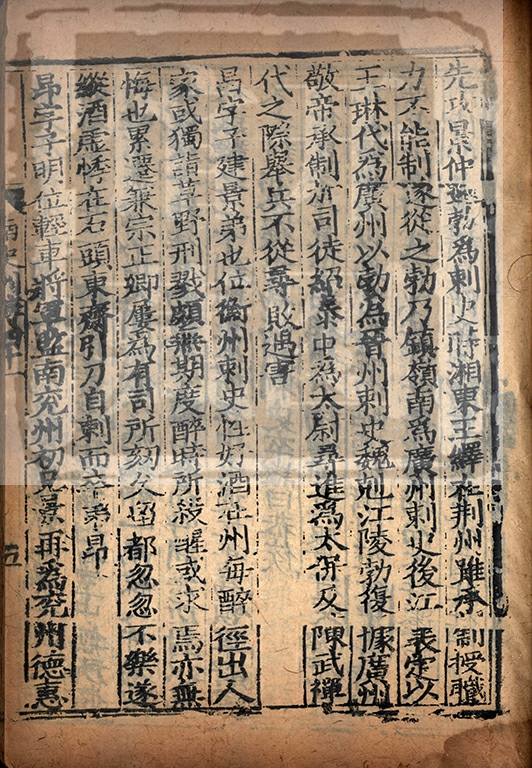 先攻景仲迎勃為刺史時湘東王繹在荆州雖承制授職
力不能制遂從之勃乃鎮嶺南為廣州刺史後江表定以
王琳代為廣州以勃為晉州刺史魏剋江陵勃復㩀廣州
敬帝承制加司徒紹泰中為太尉尋進為太保及陳武禪
代之際舉兵不從尋敗遇害
昌字子建景弟也位衡州刺史性好酒在州每醉徑出入人
家或獨詣草野刑戮頗無期度醉時所殺醒或求焉亦無
悔也累遷兼宗正卿屢為有司所劾久留都忽忽不樂遂
縱酒虛悸在石頭東齋引刀自刺而卒弟昂
昂字子明位輕車將軍監南兖州初兄景再為兖州德惠
五